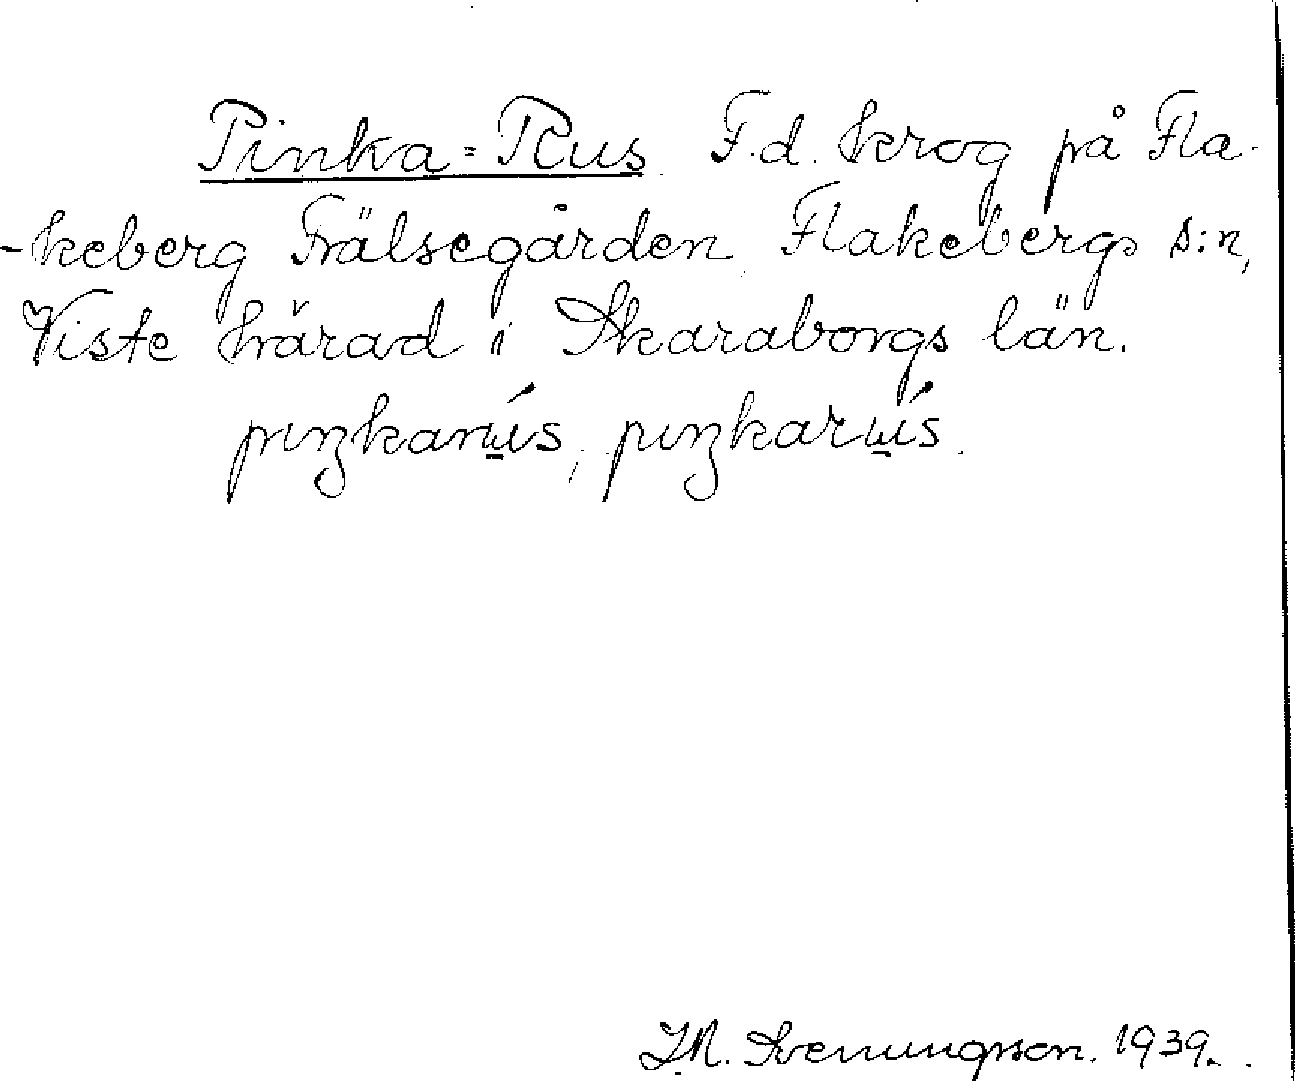 Pinka-Rus F.d. krog på Fla-
-keberg Frälsegården Flakebergs s:n,
Viste härad i Skaraborgs län.
pıŋkarɯ́s, pıŋkarɯ́s.
J.N. Svenungsson. 1939.